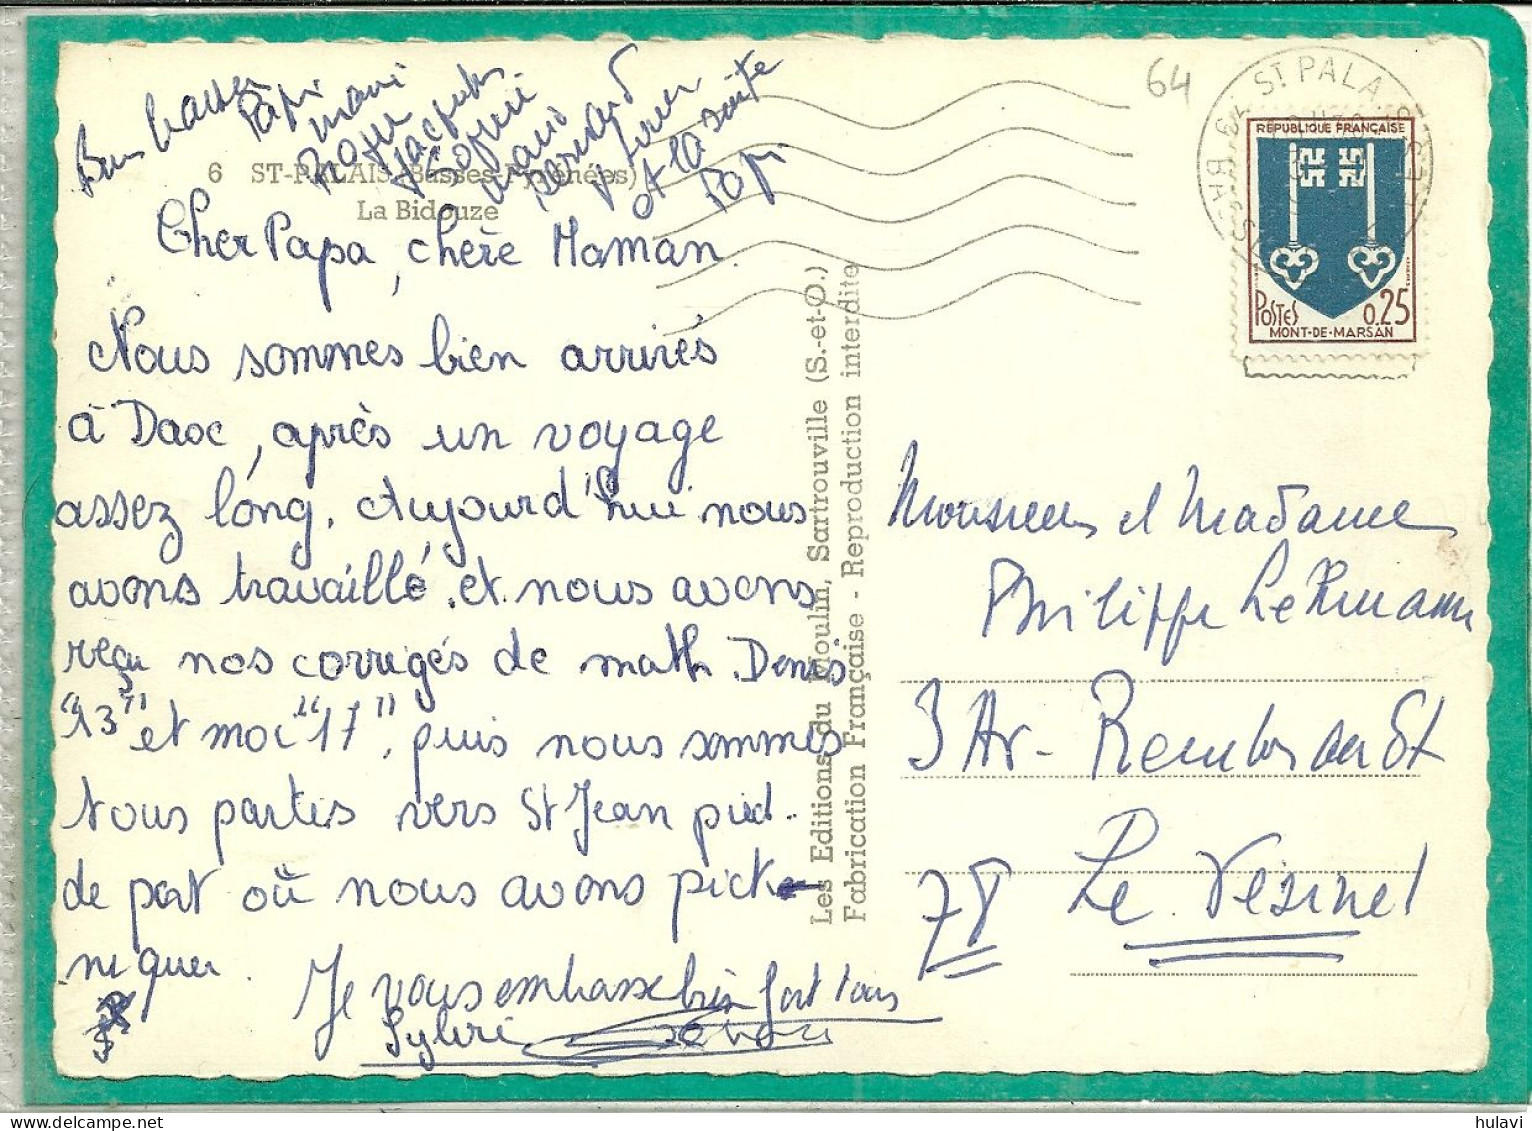 Bons baisers
Papi
mani
Jacques
Sophie
Bernard
et la suite
Papi
6 ST-PALAIS (Basses-Pyrénées)
La Bidouze
Cher Papa, chère Maman.
Nous sommes bien arrivés
à Daoc, après un voyage
assez long. Aujourd'hui nous
avons travaillé. et nous avons
reçu nos corrigés de math. Denis
"13" et moi "17", puis nous sommes
tous partis vers St Jean pied.
de port où nous avons pick
niquer.
Je vous embrasse bien fort tous
Sylvie
Les Editions du Moulin, Sartrouville (S.-et-O.)
Fabrication Française - Reproduction interdite
64
ST PALAIS
REPUBLIQUE FRANÇAISE
POSTES 0,25
MONT-DE-MARSAN
Monsieur et Madame
Philippe Lehmann
3 Av- Rembrandt
78 Le Vésinet
hulavi